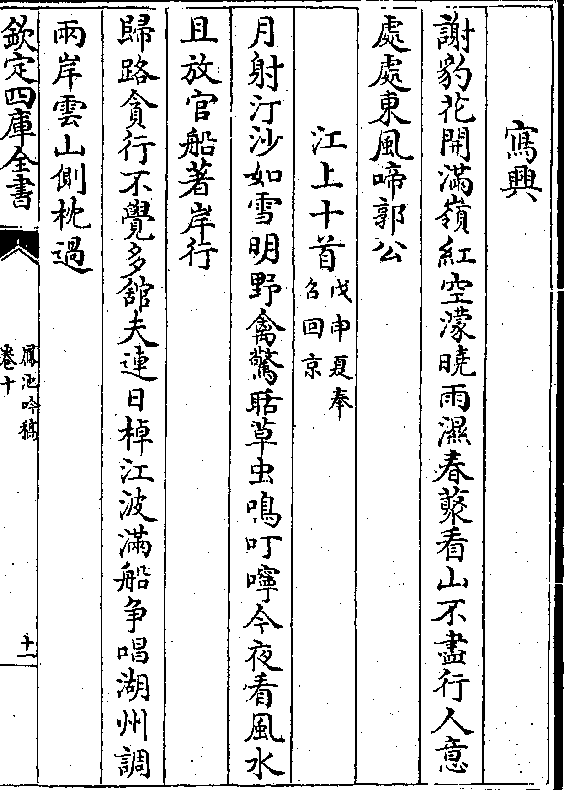 寫興
謝豹花開滿嶺紅空濛曉雨濕春藂看山不盡行人意
處處東風啼郭公
江上十首戊申夏奉
召回京
月射汀沙如雪明野禽驚聒草虫鳴叮嚀今夜看風水
且放官船著岸行
歸路貪行不覺多舘夫連日棹江波滿船争唱湖州調
兩岸雲山側枕過
欽定四庫全書
鳳池吟稿
卷十
十一